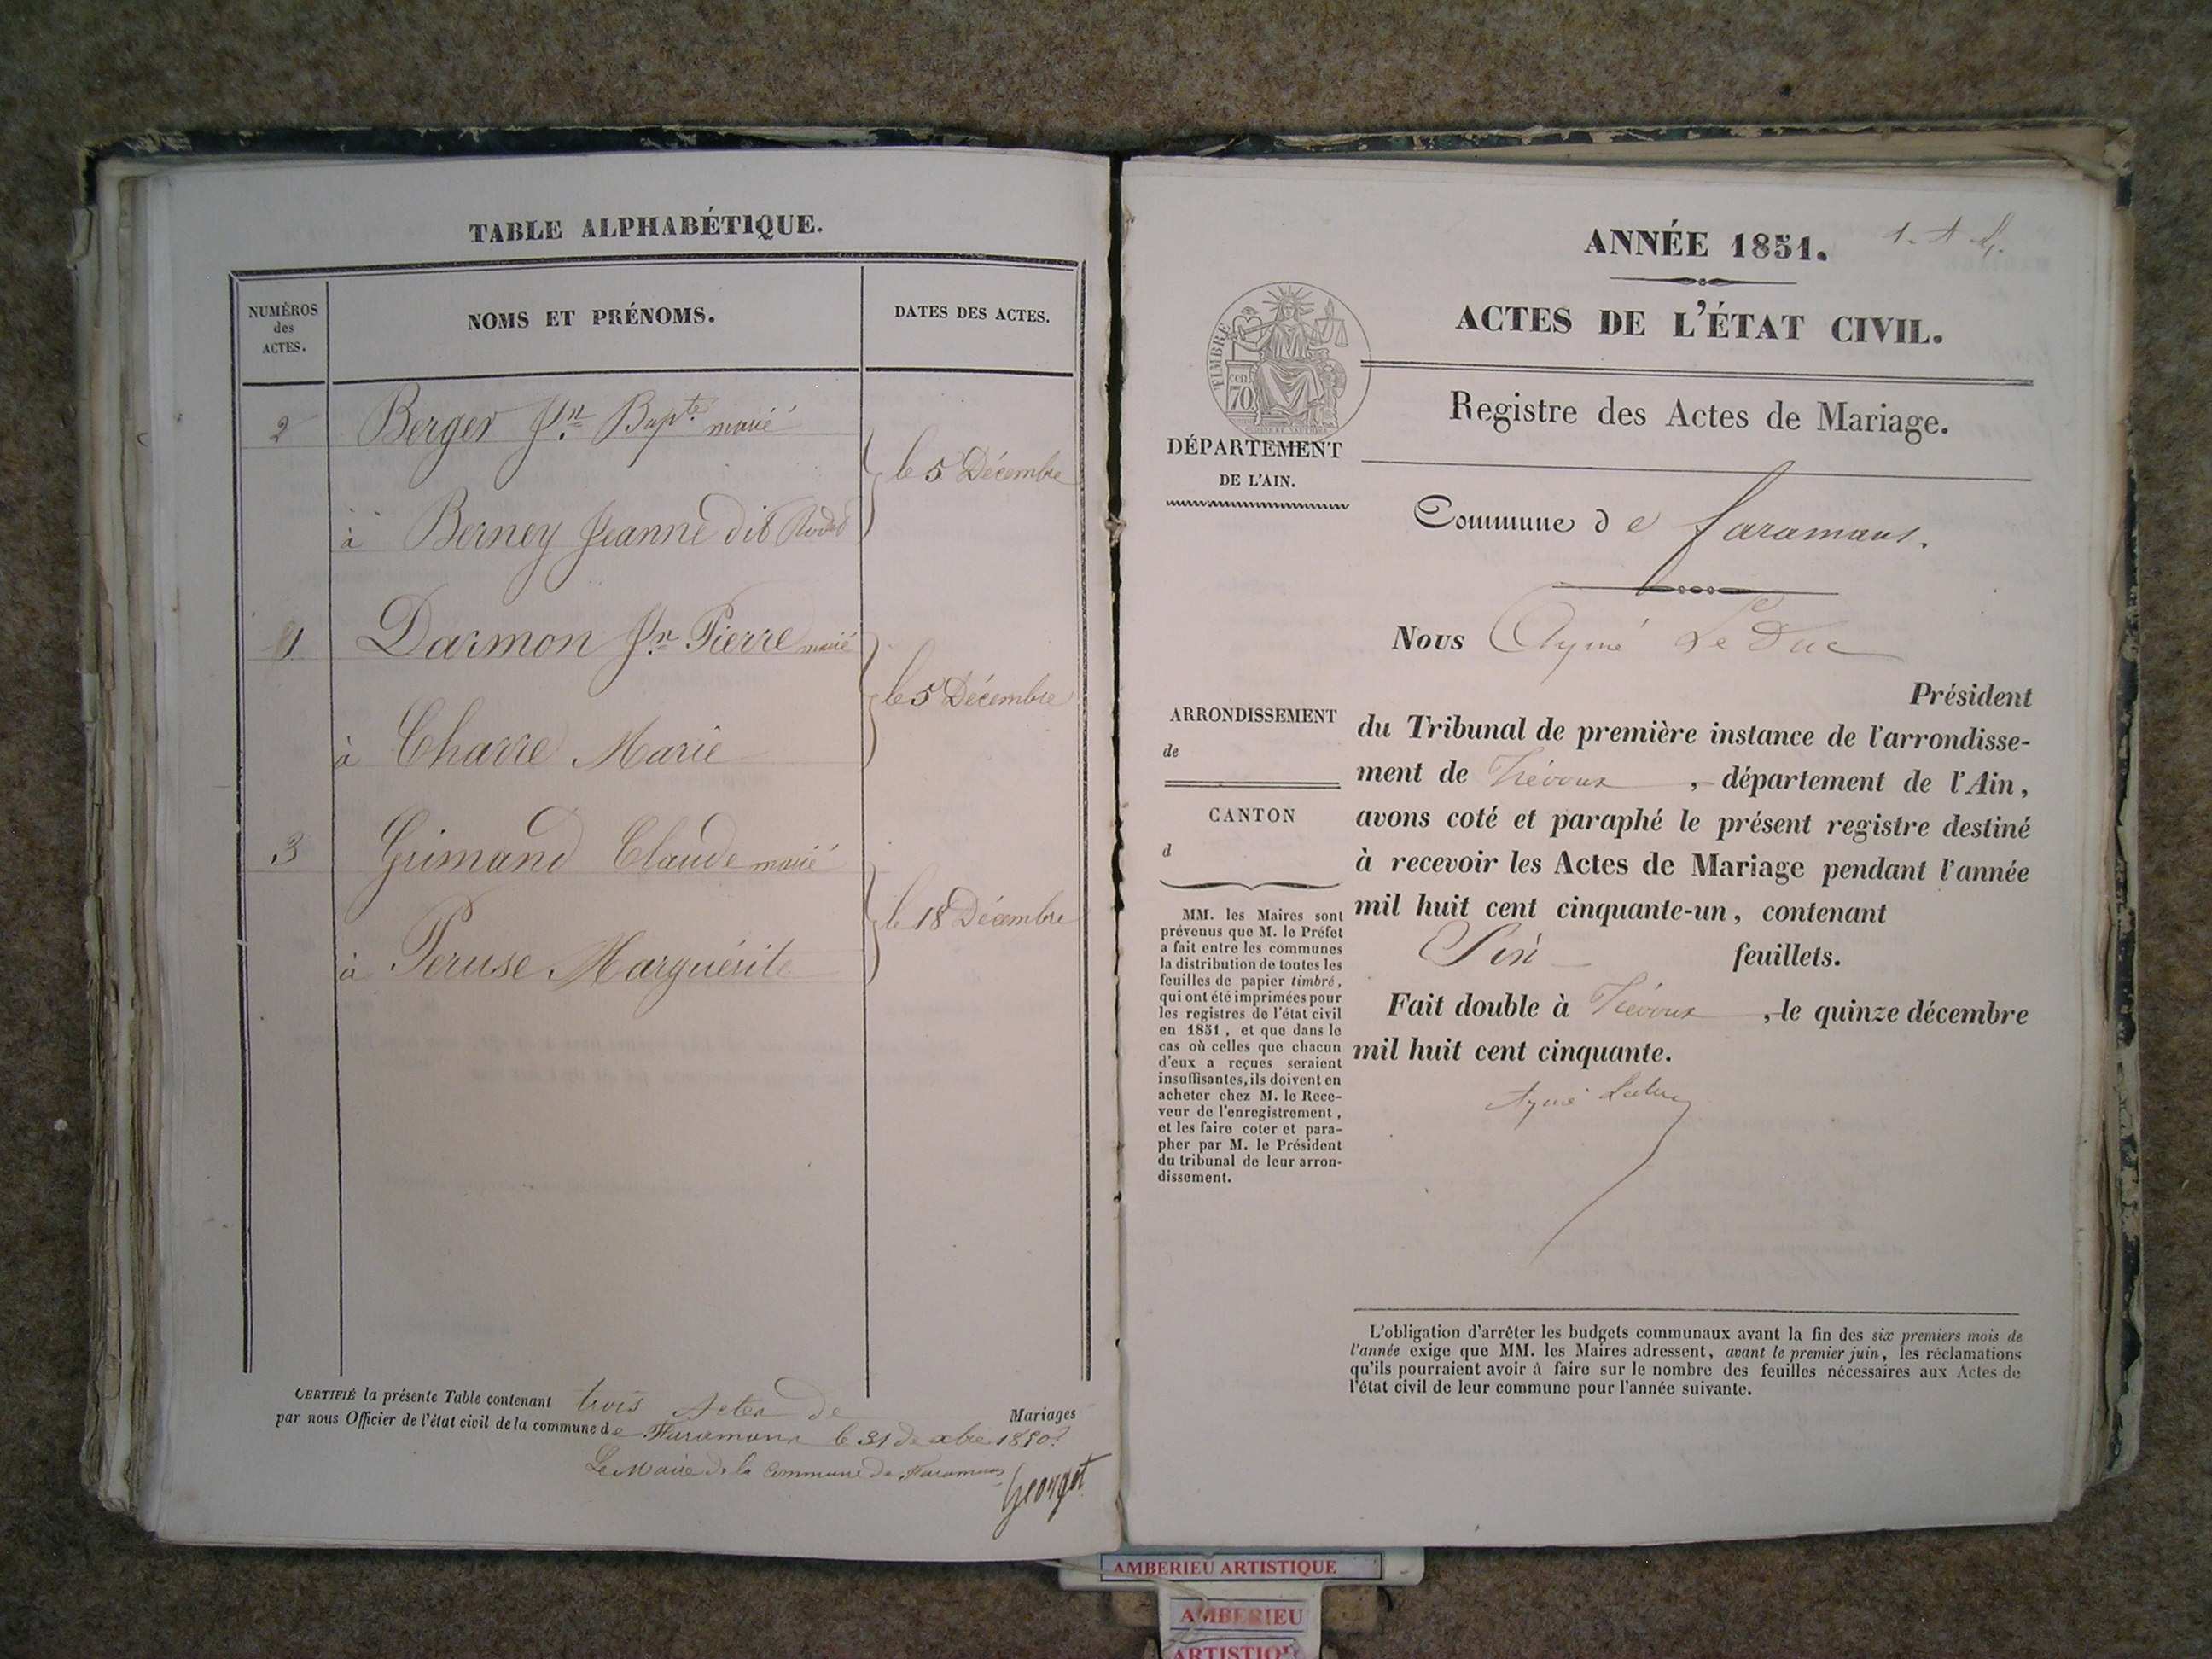 TABLE ALPHABÉTIQUE.
NUMÉROS
des
ACTES.
NOMS ET PRÉNOMS.
DATES DES ACTES.
2 Berger Jn Bapte marié
le 5 Décembre
à Berney Jeanne dit
1 Darmon Jn Pierre marié
le 5 Décembre
à Charre Marie
3 Grimand Claude marié
le 18 Décembre
à Peruse Marguérite
CERTIFIÉ la présente Table contenant trois Actes de Mariages
par nous Officier de l'état civil de la commune de Faramans le 31 Xbre 1850
Le Maire de la Commune de Faramans
Georget
ANNÉE 1851.
ACTES DE L'ÉTAT CIVIL.
TIMBRE
cen.
70
Registre des Actes de Mariage.
DÉPARTEMENT
DE L'AIN.
Commune de faramans.
Nous Aymé Le Duc
Président
du Tribunal de première instance de l'arrondisse-
ment de Trévoux, département de l'Ain,
avons coté et paraphé le présent registre destiné
à recevoir les Actes de Mariage pendant l'année
mil huit cent cinquante-un, contenant
Six feuillets.
Fait double à Trévoux, le quinze décembre
mil huit cent cinquante.
Aymé Leduc
ARRONDISSEMENT
de
CANTON
d
MM. les Maires sont
prévenus que M. le Préfet
a fait entre les communes
la distribution de toutes les
feuilles de papier timbré,
qui ont été imprimées pour
les registres de l'état civil
en 1851, et que dans le
cas où celles que chacun
d'eux a reçues seraient
insuffisantes, ils doivent en
acheter chez M. le Rece-
veur de l'enregistrement,
et les faire coter et para-
pher par M. le Président
du tribunal de leur arron-
dissement.
L'obligation d'arrêter les budgets communaux avant la fin des six premiers mois de
l'année exige que MM. les Maires adressent, avant le premier juin, les réclamations
qu'ils pourraient avoir à faire sur le nombre des feuilles nécessaires aux Actes de
l'état civil de leur commune pour l'année suivante.
AMBERIEU ARTISTIQUE
AMBERIEU
ARTISTIQUE